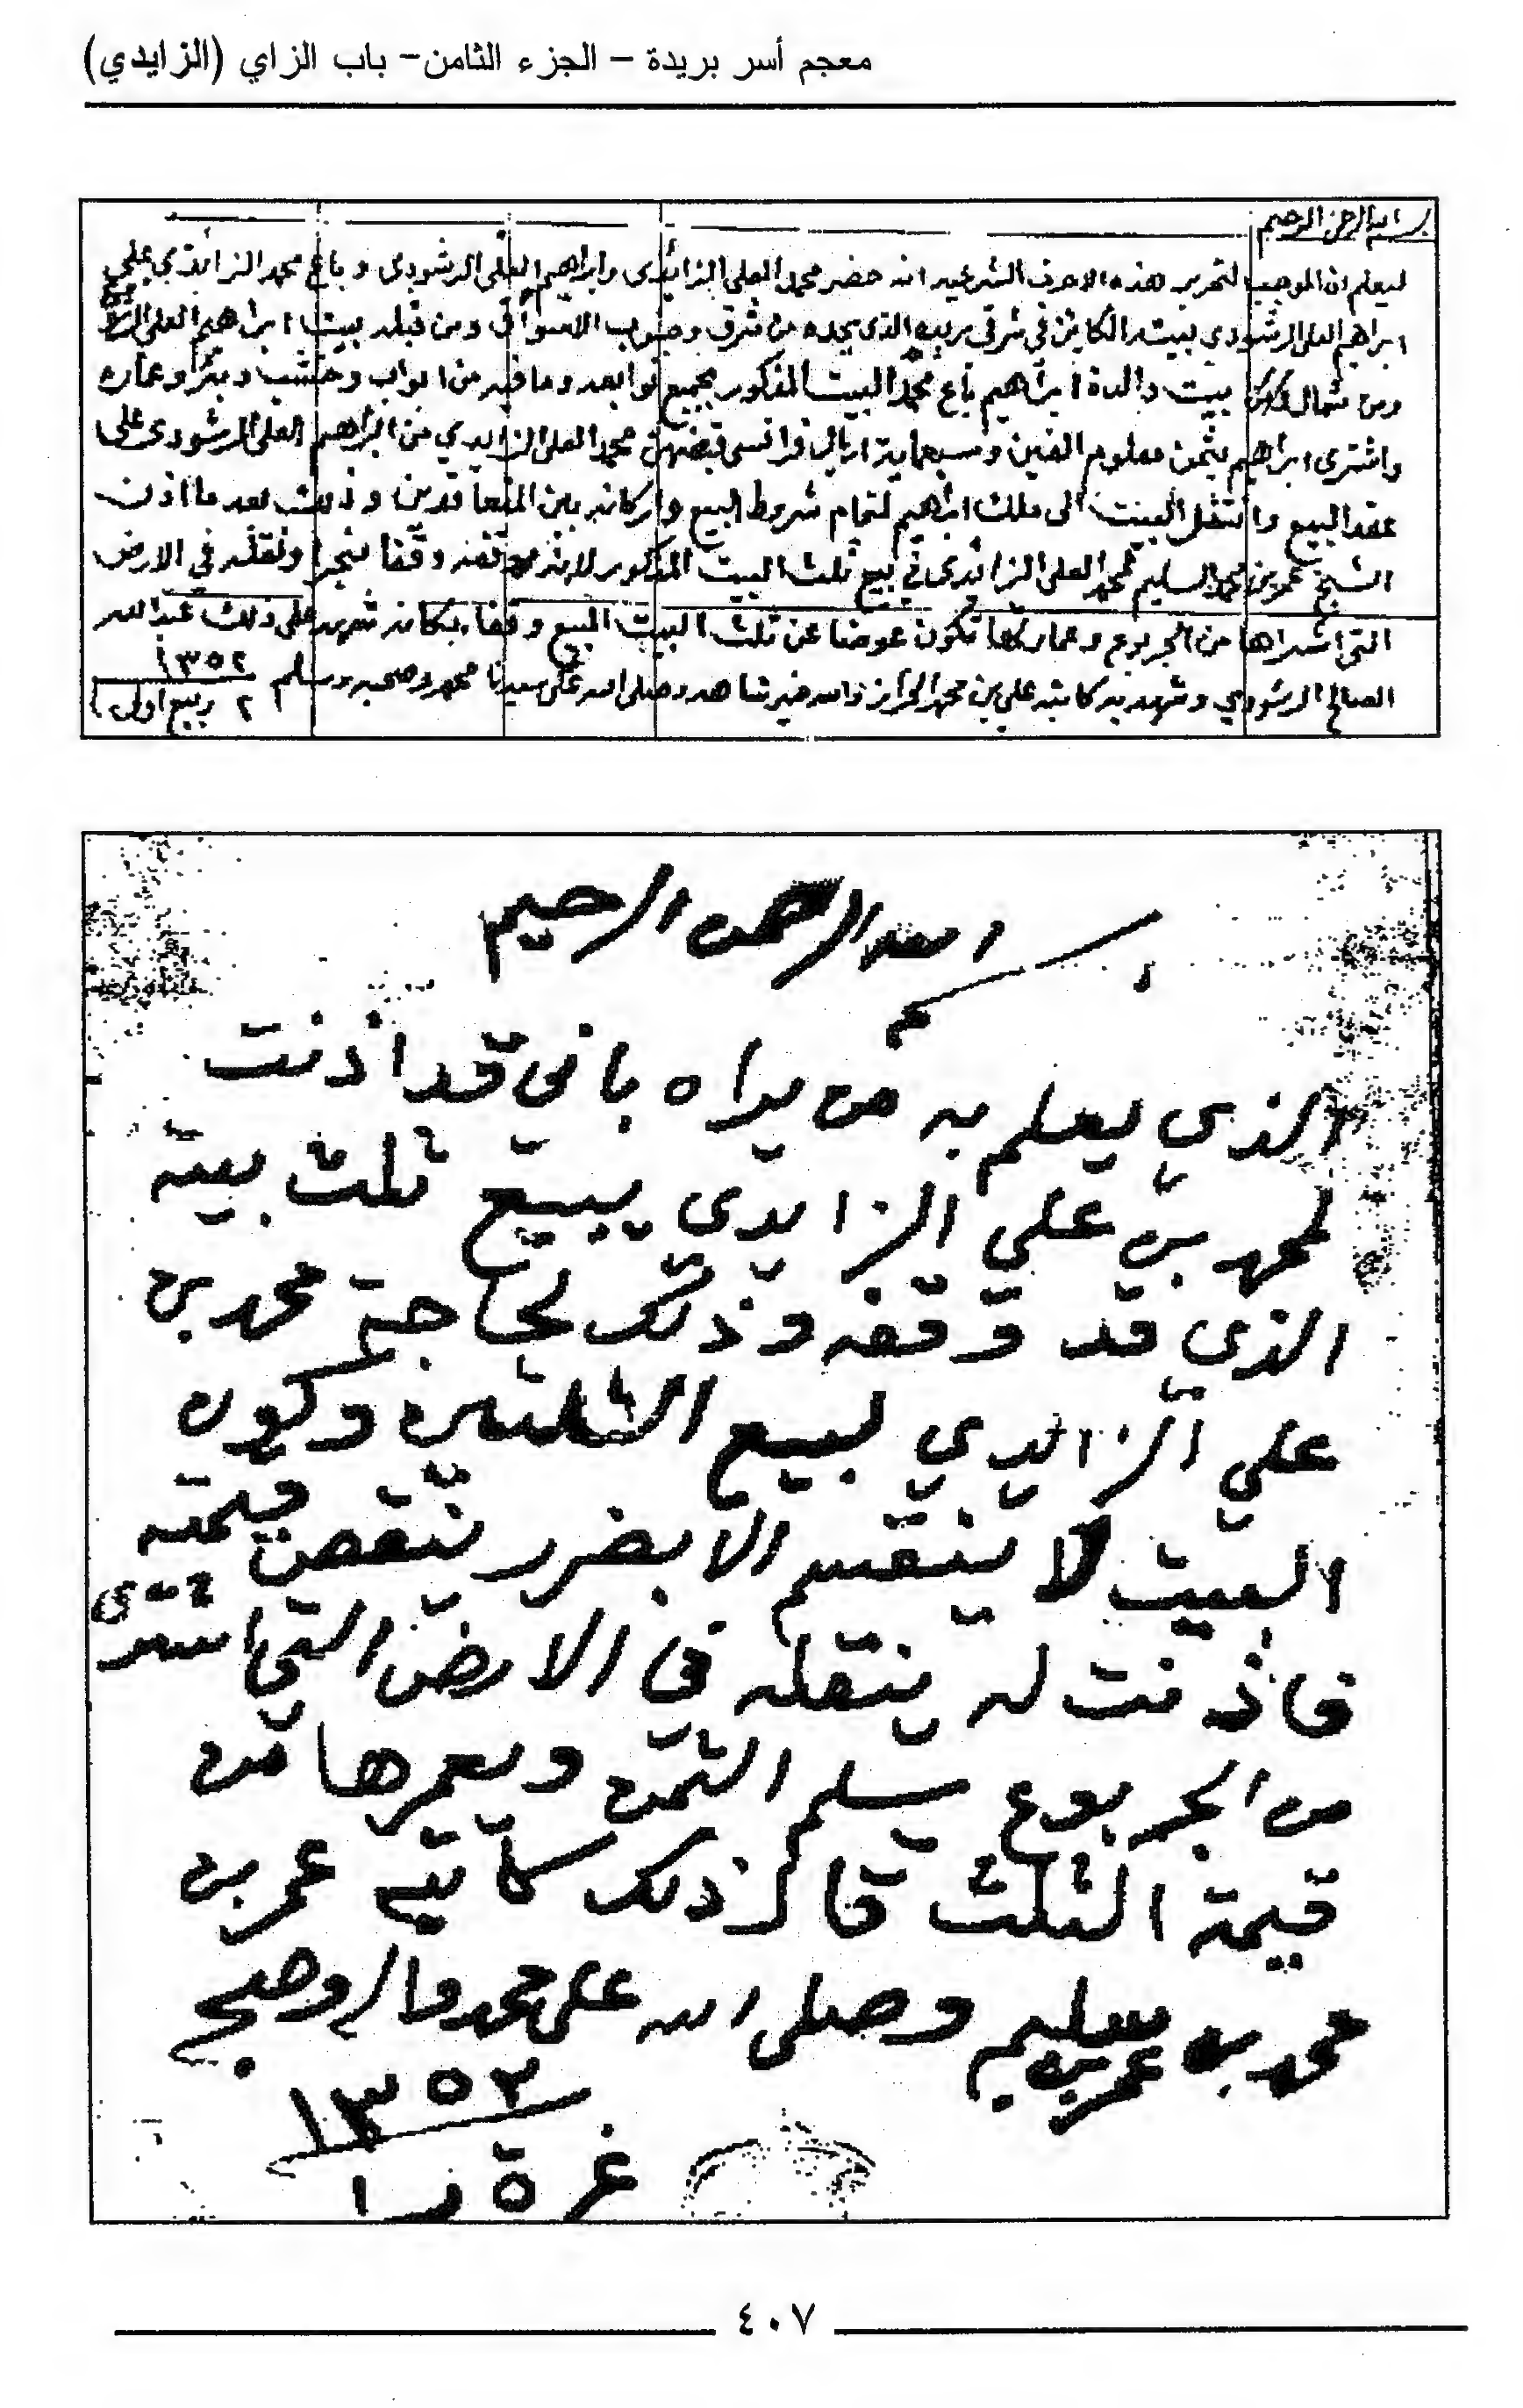 معجم أسر بريدة – الجزء الثامن – باب الزاي (الزايدي)
بسم الله الرحمن الرحيم
ليعلم ان الموجب لتحرير هذه الاحرف الشرعيه انه حضر محمد العلي الزايدي وابراهيم العلي الرشودي وباع محمد الزايدي على
ابراهيم العلي الرشودي بيته الكاين في شرقي بريده الذي يحده من شرق وجنوب الاسواق ومن قبله بيت ابراهيم العلي
ومن شمال كذلك بيت والدة ابراهيم باع محمد البيت المذكور بجميع توابعه وما فيه من ابواب وخشب وبئر وعماره
واشترى ابراهيم بثمن معلوم الفين وسبعماية اريال فرانسي قبضهن محمد العلي الزايدي من ابراهيم العلي الرشودي على
عقد البيع وانتقل البيت الى ملك ابراهيم لتمام شروط البيع واركانه بين المتعاقدين وذلك بعد ما اذن
الشيخ عمر بن محمد السليم لمحمد العلي الزايدي في بيع ثلث البيت المذكور لانه وقفه وقفا منجزا ونقله في الارض
التي اشتراها من الجربوع وعمارتها تكون عوضا عن ثلث البيت المبيع وقفا بمكانه شهد على ذلك عبد الله
الصالح الرشودي وشهد به كاتبه علي بن محمد الحزاب والله خير شاهد وصلى الله على سيدنا محمد وصحبه وسلم ١٣٥٢
٢ ربيع اول
بسم الله الرحمن الرحيم
الذي يعلم به من يراه باني قد اذنت
لمحمد بن علي الزايدي يبيع ثلث بيته
الذي قد وقفه وذلك لحاجة محمد بن
علي الزايدي لبيع الثلثين وكون
البيت لا ينقسم الا بضرر ينقص قيمته
فاذنت له ينقله في الارض التي اشترى
من الجربوع يسلم الثمن ويعمرها من
قيمة الثلث قال ذلك كاتبه عمر بن
محمد بن سليم وصلى الله على محمد واله وصحبه
١٣٥٢
غرة را
٤٠٧